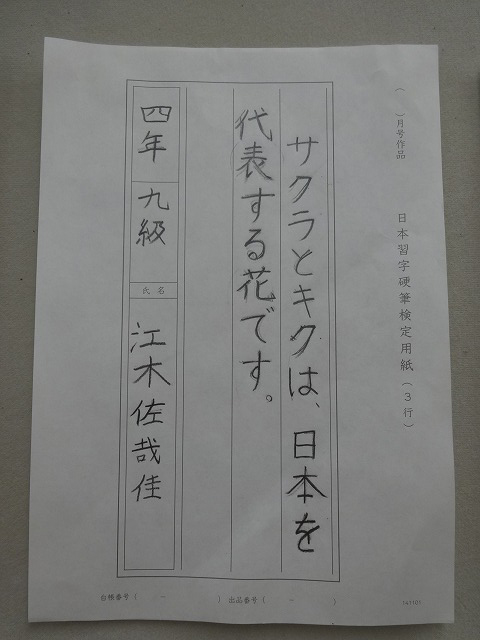 （　　）月号作品
日本習字硬筆検定用紙（３行）
サクラとキクは、日本を
代表する花です。
四年 九級
氏名
江木佐哉佳
台帳番号（　　−　　）　出品番号（　　−　　）